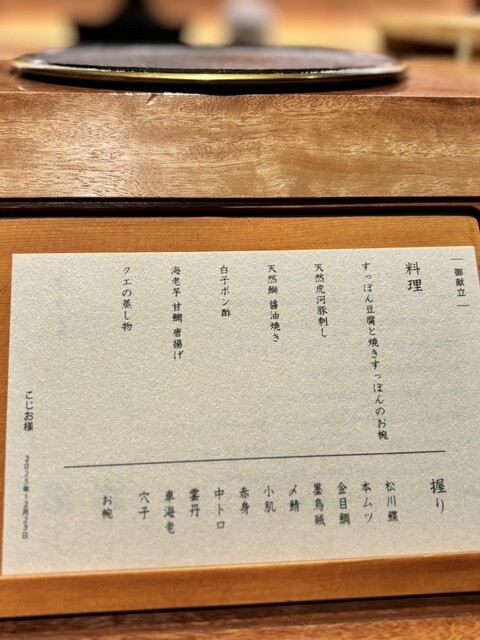 御献立
料理
すっぽん豆腐と焼きすっぽんのお椀
天然虎河豚刺し
天然鰤 醤油焼き
白子ポン酢
海老芋 甘鯛 唐揚げ
クエの蒸し物
握り
松川鰈
本ムツ
金目鯛
墨烏賊
〆鯖
小肌
赤身
中トロ
雲丹
車海老
穴子
お椀
こじお様
2025年12月23日